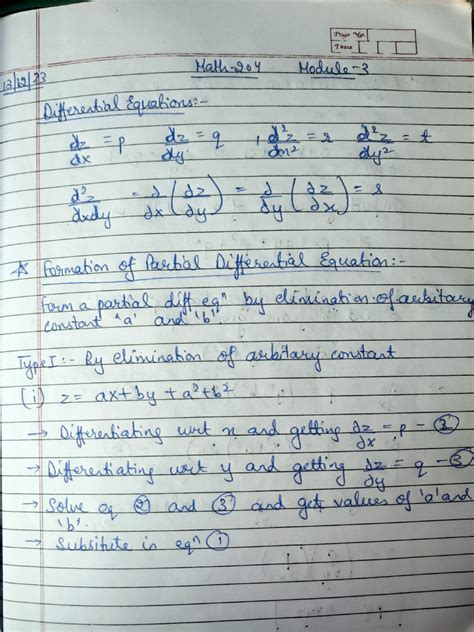 Page No.
Date
Math-204 Module-3
13/12/23
Differential Equations:-
dz/dx = p dz/dy = q , d²z/dx² = r d²z/dy² = t
d²z/dxdy = ∂/∂x (∂z/∂y) = ∂/∂y (∂z/∂x) = s
☆ Formation of Partial Differential Equation:-
Form a partial diff eqⁿ by elimination of arbitary
constant 'a' and 'b'.
Type I :- By elimination of arbitary constant
(i) z = ax + by + a² + b²
→ Differentiating wrt x and getting ∂z/∂x = p - ②
→ Differentiating wrt y and getting ∂z/∂y = q - ③
→ Solve eq ② and ③ and get values of 'a' and
'b'.
→ Subsitute in eqⁿ ①